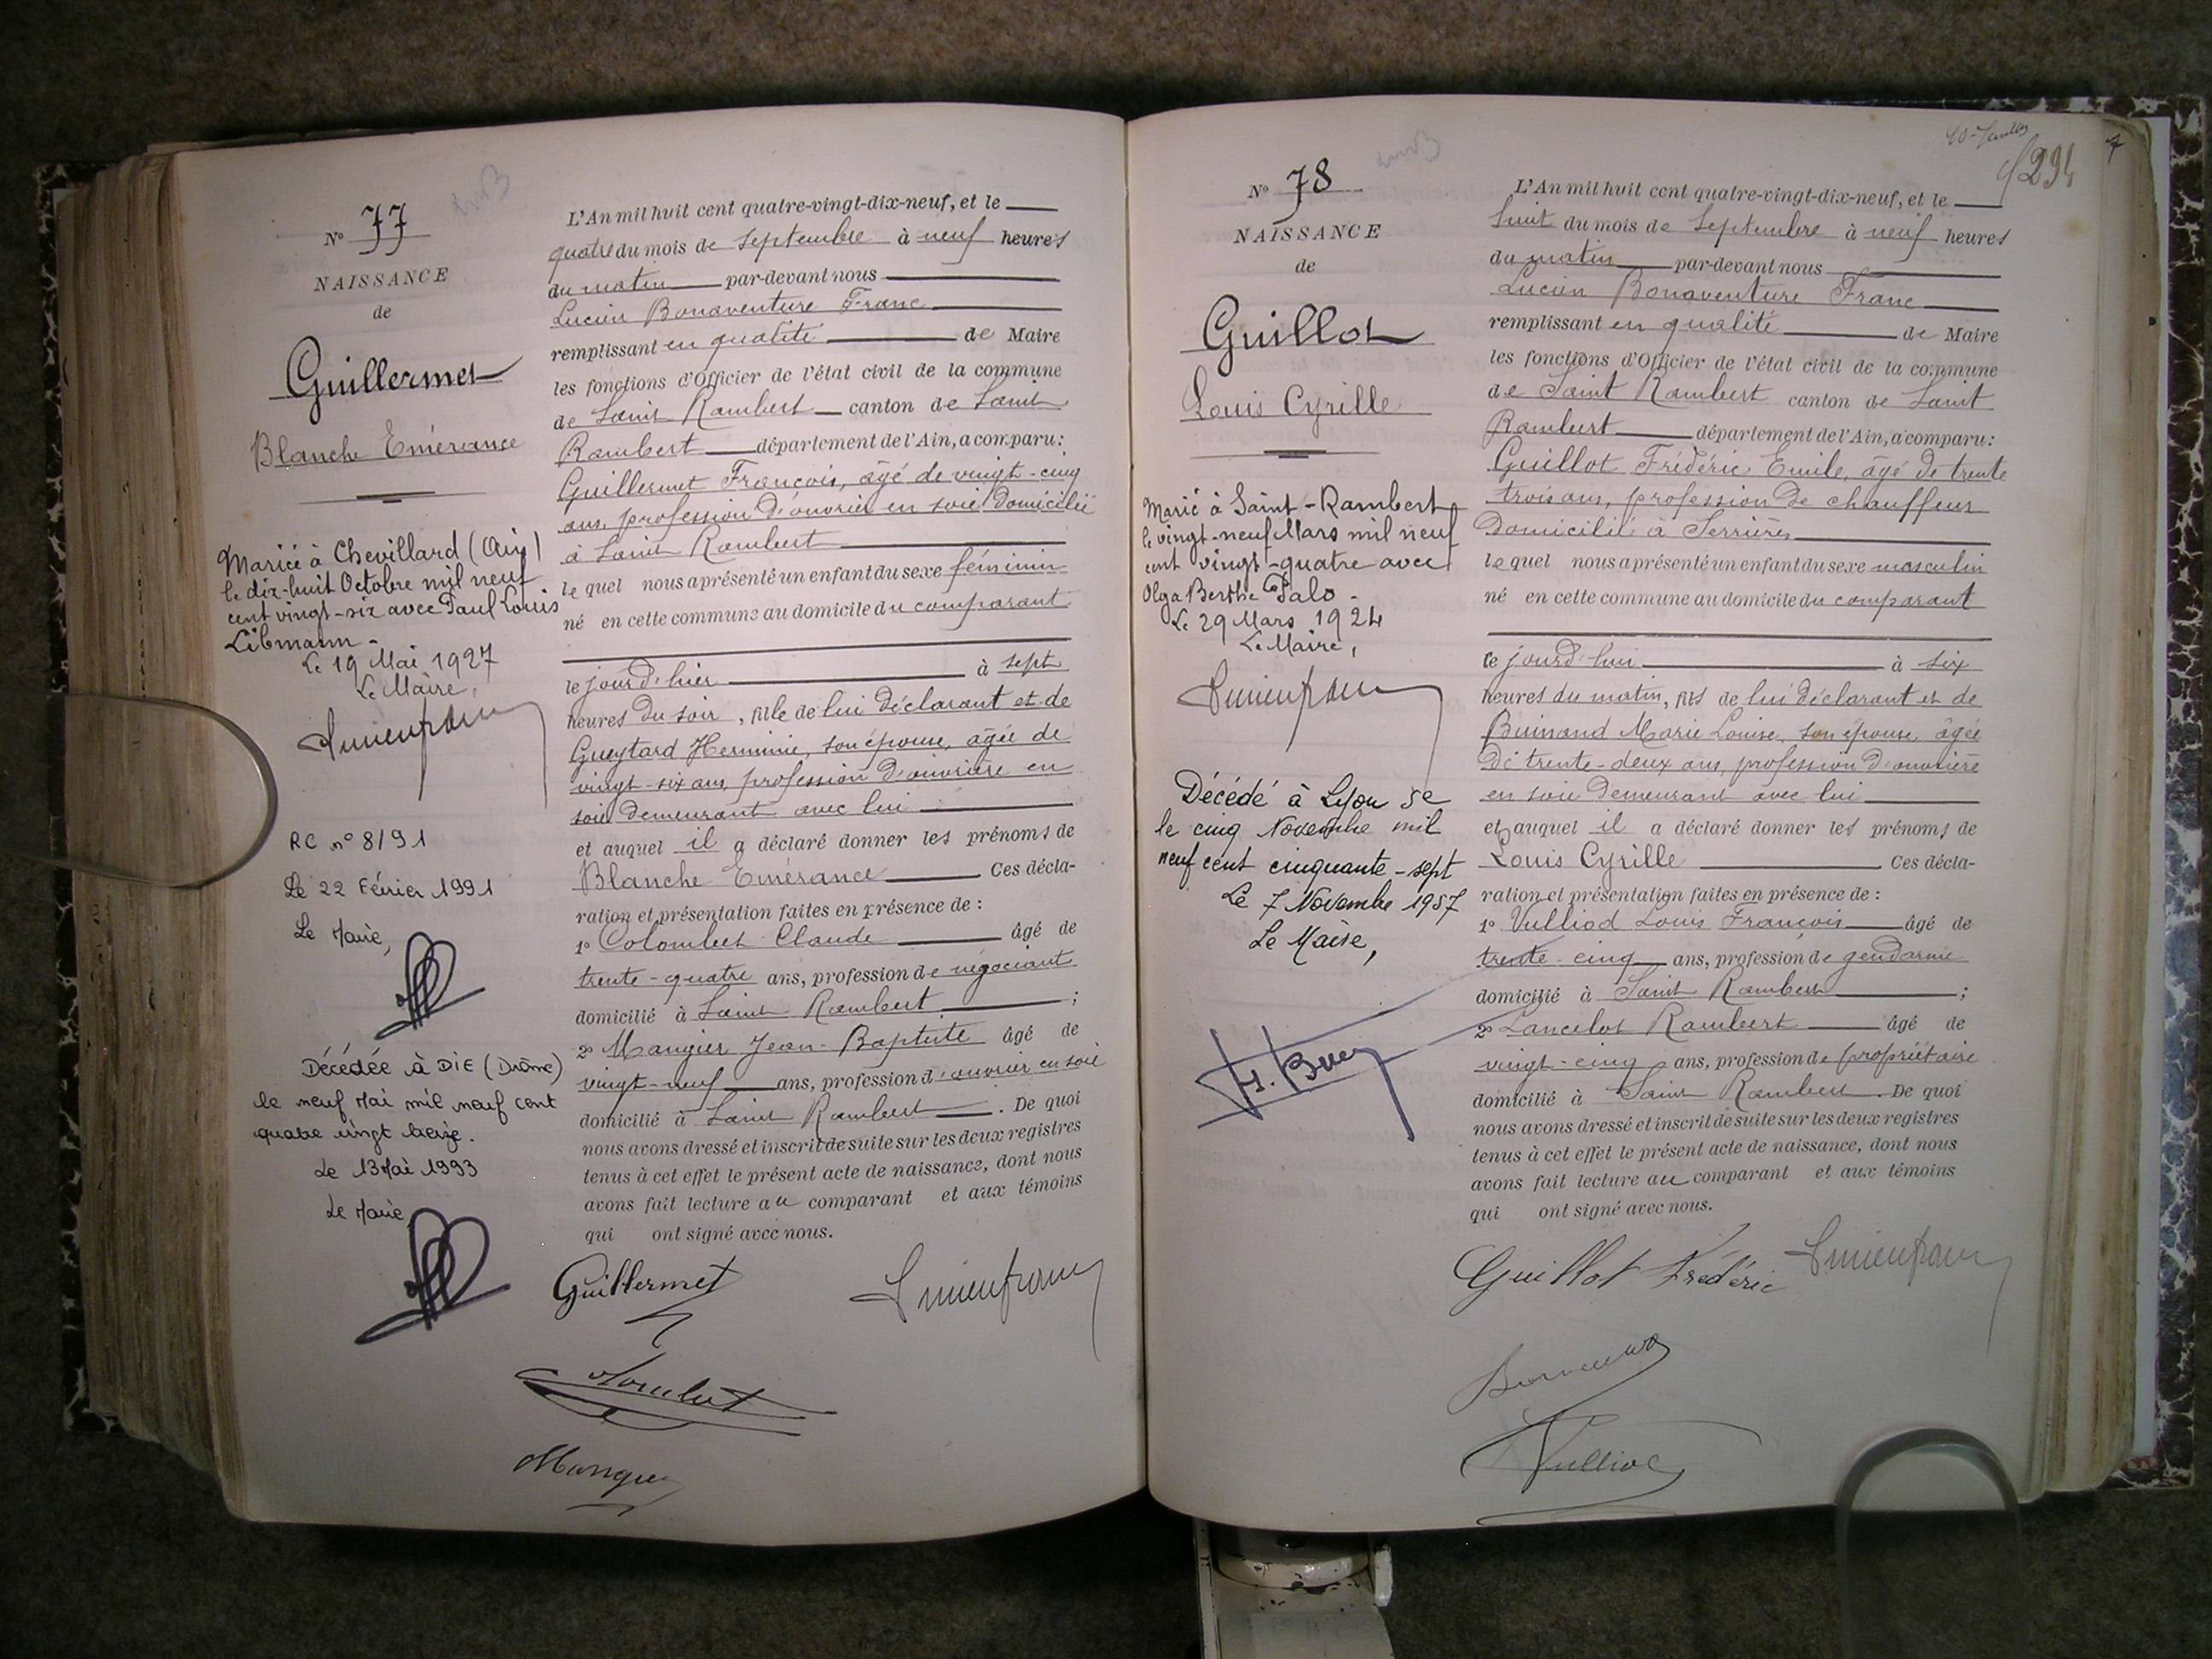 Nº 77
NAISSANCE
de
Guillermet
Blanche Emérance
Mariée à Chevillard (Ain)
le dix-huit Octobre mil neuf
cent vingt-six avec Paul Louis
Libmann -
Le 19 Mai 1927
Le Maire,
RC nº 8/91
Le 22 Février 1991
Le Maire,
Décédée à DIE (Drôme)
le neuf Mai mil neuf cent
quatre vingt treize.
Le 13 Mai 1993
Le Maire
L'An mil huit cent quatre-vingt-dix-neuf, et le
quatre du mois de Septembre à neuf heures
du matin par-devant nous
Lucien Bonaventure Franc
remplissant en qualité de Maire
les fonctions d'Officier de l'état civil de la commune
de Saint Rambert canton de Saint
Rambert département de l'Ain, a comparu :
Guillermet François, âgé de vingt-cinq
ans, profession d'ouvrier en soie domicilié
à Saint Rambert
le quel nous a présenté un enfant du sexe féminin
né en cette commune au domicile du comparant
le jour d'hier à sept
heures du soir, fille de lui déclarant et de
Gueytard Herminie, son épouse, âgée de
vingt-six ans, profession d'ouvrière en
soie demeurant avec lui
et auquel il a déclaré donner les prénoms de
Blanche Emérance Ces décla-
ration et présentation faites en présence de :
1º Colombet Claude âgé de
trente-quatre ans, profession de négociant
domicilié à Saint Rambert ;
2º Mangier Jean-Baptiste âgé de
vingt-neuf ans, profession d'ouvrier en soie
domicilié à Saint Rambert . De quoi
nous avons dressé et inscrit de suite sur les deux registres
tenus à cet effet le présent acte de naissance, dont nous
avons fait lecture au comparant et aux témoins
qui ont signé avec nous.
Guillermet Lucien Franc
Colombet
Mangier
294
Nº 78
NAISSANCE
de
Guillot
Louis Cyrille
Marié à Saint-Rambert
le vingt-neuf Mars mil neuf
cent vingt-quatre avec
Olga Berthe Falo -
Le 29 Mars 1924
Le Maire,
Décédé à Lyon 5e
le cinq Novembre mil
neuf cent cinquante-sept
Le 7 Novembre 1957
Le Maire,
L'An mil huit cent quatre-vingt-dix-neuf, et le
huit du mois de Septembre à neuf heures
du matin par-devant nous
Lucien Bonaventure Franc
remplissant en qualité de Maire
les fonctions d'Officier de l'état civil de la commune
de Saint Rambert canton de Saint
Rambert département de l'Ain, a comparu :
Guillot Frédéric Emile, âgé de trente
trois ans, profession de chauffeur
domicilié à Serrières
le quel nous a présenté un enfant du sexe masculin
né en cette commune au domicile du comparant
le jour d'hui à six
heures du matin, fils de lui déclarant et de
Buinand Marie Louise, son épouse, âgée
de trente-deux ans, profession d'ouvrière
en soie demeurant avec lui
et auquel il a déclaré donner les prénoms de
Louis Cyrille Ces décla-
ration et présentation faites en présence de :
1º Vulliod Louis François âgé de
trente-cinq ans, profession de gendarme
domicilié à Saint Rambert ;
2º Lancelot Rambert âgé de
vingt-cinq ans, profession de propriétaire
domicilié à Saint Rambert . De quoi
nous avons dressé et inscrit de suite sur les deux registres
tenus à cet effet le présent acte de naissance, dont nous
avons fait lecture au comparant et aux témoins
qui ont signé avec nous.
Guillot Frédéric Lucien Franc
Vulliod